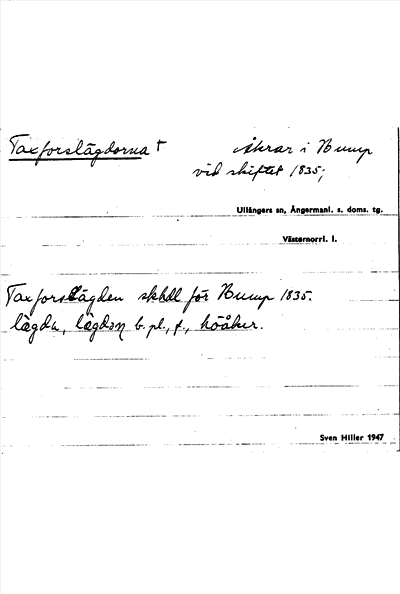 Taxforslägdorna † Åkrar i Bump
vid skiftet 1835;
Ullångers sn, Ångermanl. s. doms. tg.
Västernorrl. l.
Taxforslägden skhdl för Bump 1835.
lägda, lägdəɳ b. pl., f., höåker.
Sven Hiller 1947